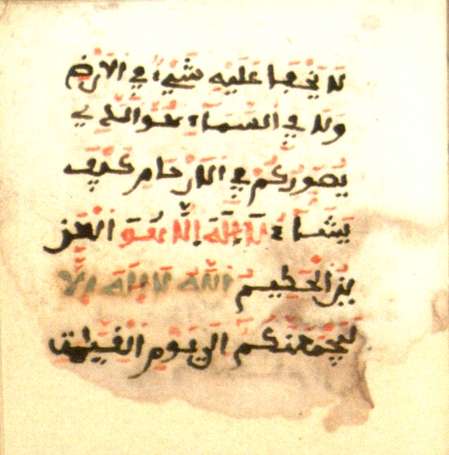 لَا يَخْفَا عَلَيْهِ شَيْءٌ فِي الْأَرْضِ
وَلَا فِي السَّمَاءِ هُوَ الَّذِي
يُصَوِّرُكُمْ فِي الْأَرْحَامِ كَيْفَ
يَشَاءُ لَا إِلَهَ إِلَّا هُوَ الْعَزِ
يزُ الْحَكِيمُ اللَّهُ لَا إِلَهَ إِلَّا
لَيَجْمَعَنَّكُمْ إِلَى يَوْمِ الْقِيَامَةِ